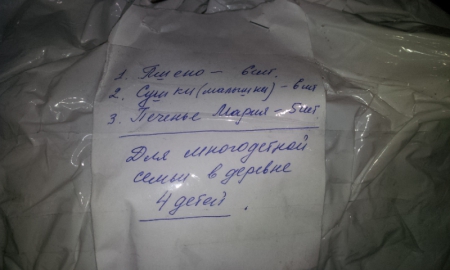 1. Пшено – 6 шт.
2. Сушки (малышки) – 6 шт
3. Печенье Мария – 5 шт.
Для многодетной
семьи в деревне
4 детей.